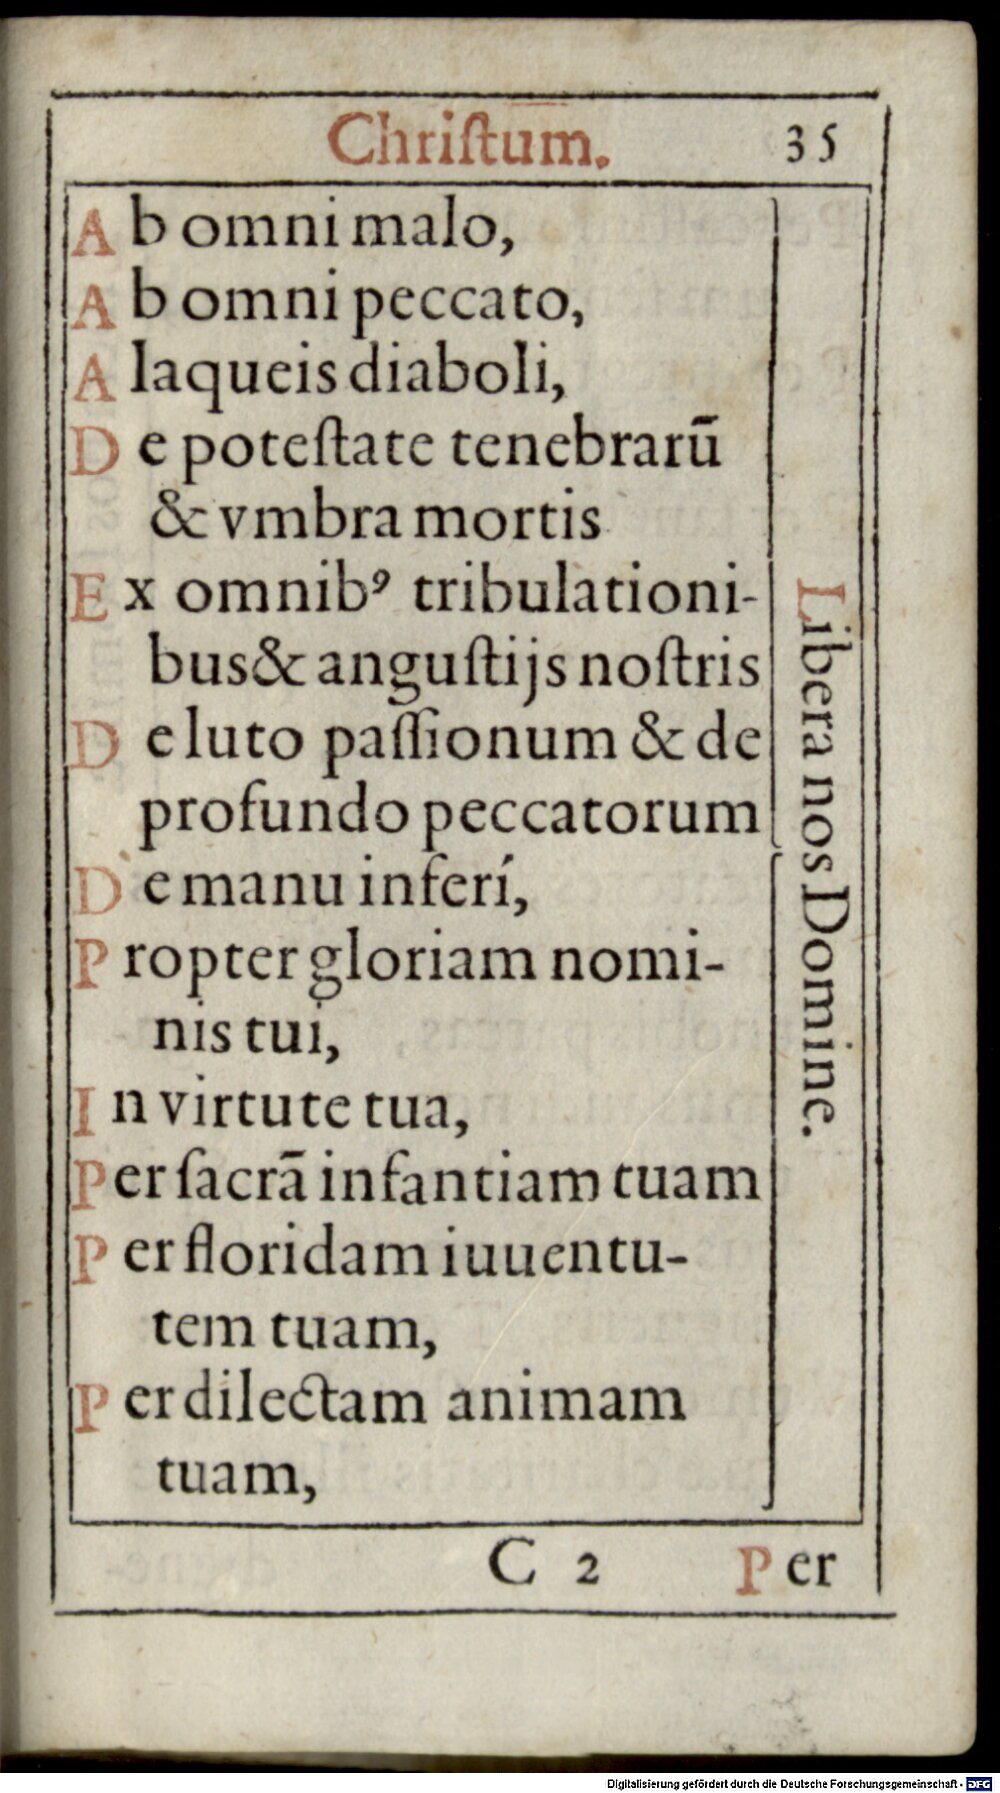 Chriſtum. 35
Ab omni malo,
Ab omni peccato,
A laqueis diaboli,
De poteſtate tenebrarū
& vmbra mortis
Ex omnibꝰ tribulationi-
bus & anguſtijs noſtris
De luto paſſionum & de
profundo peccatorum
De manu inferí,
Propter gloriam nomi-
nis tui,
In virtute tua,
Per ſacrā infantiam tuam
Per floridam iuuentu-
tem tuam,
Per dilectam animam
tuam,
Libera nos Domine.
C 2 Per
Digitalisierung gefördert durch die Deutsche Forschungsgemeinschaft - DFG